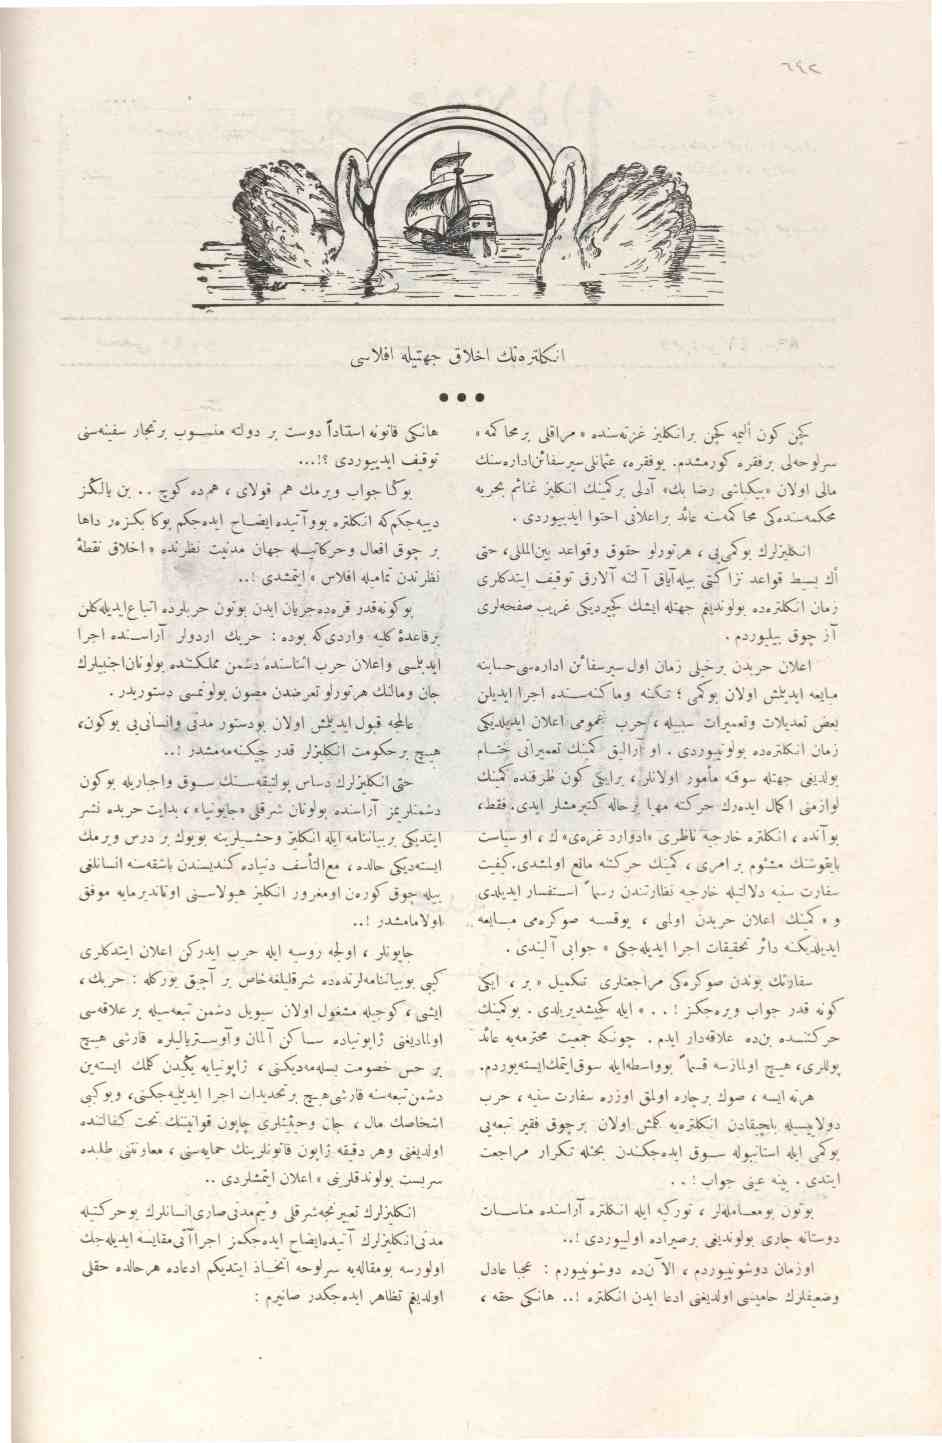 ٢٤٢
انكلتره‌نك اخلاق جهتيله افلاسى
•••
كچن كون أليمه كچن برانكليز غزته‌سنده « مراقلى بر محاكمه »
سرلوحه‌لى بر فقره كورمشدم. بوفقره، عثمانلى سيرسفائن اداره‌سنك
مالى اولان «بيكباشى رضا بك» آدلى بركمينك انكليز غنائم بحريه
محكمه‌سنده‌كى محاكمه‌سنه عائد براعلانى احتوا ايدييوردى .
انكليزلرك بوكمى‌يى ، هرتورلو حقوق وقواعد بين‌المللى، حتى
اك بسيط قواعد نزاكتى بيله‌آياق آلتنه آلارق توقيف ايتدكلرى
زمان انكلتره‌ده بولونديغم جهتله ايشك كچيرديكى غريب صفحه‌لرى
آز چوق بيليوردم .
اعلان حربدن برخيلى زمان اول سيرسفائن اداره‌سى حسابنه
مبايعه ايديلمش اولان بوكمى ؛ تكنه وماكنه‌سنده اجرا ايديلن
بعض تعديلات وتعميرات سببيله ، حرب عمومى اعلان ايديلديكى
زمان انكلتره‌ده بولونيوردى . او آرالق كمينك تعميراتى ختام
بولديغى جهتله سوقنه مأمور اولانلر ، برايكى كون ظرفنده كمينك
لوازمنى اكمال ايده‌رك حركته مهيا برحاله كتيرمشلر ايدى. فقط،
بوآنده ، انكلتره خارجيه ناظرى «ادوارد غره‌ى» ك ، او سياست
بايقوشنك مشئوم بر امرى ، كمينك حركتنه مانع اولمشدى.كيفيت
سفارت سنيه دلالتيله خارجيه نظارتندن رسماً استفسار ايديلدى
و « كمينك اعلان حربدن اولمى ، يوقسه صوكره‌مى مبايعه
ايديلديكنه دائر تحقيقات اجرا ايديله‌جكى » جوابى آلندى .
سفارتك بوندن صوكره‌كى مراجعتلرى تكميل « بر ، ايكى
كونه قدر جواب ويره‌جكز ! . . » ايله كچيشديريلدى . بوكمينك
حركتنده بن‌ده علاقه‌دار ايدم . چونكه جمعيت محترمه‌يه عائد
پوللرى، هيچ اولمازسه قسماً بوواسطه‌ايله سوق‌ايتمك‌ايسته‌يوردم.
هرنه ايسه ، صوك برچاره اولمق اوزره سفارت سنيه ، حرب
دولاييسيله بلچيقادن انكلتره‌يه كلمش اولان برچوق فقير تبعه‌يى
بوكمى ايله استانبوله سوق ايده‌جكندن بحثله تكرار مراجعت
ايتدى . ينه عينى جواب ! . .
بوتون بومعامله‌لر ، توركيه ايله انكلتره آراسنده مناسبات
دوستانه جارى بولونديغى برصيراده اولييوردى !..
اوزمان دوشونييوردم ، الآن‌ده دوشونييورم : عجبا عادل
وضعيفلرك حاميسى اولديغنى ادعا ايدن انكلتره !.. هانكى حقه ،
هانكى قانونه استناداً دوست بر دولته منسوب برتجار سفينه‌سنى
توقيف ايدييوردى ؟!...
بوكا جواب ويرمك هم قولاى ، هم‌ده كوچ .. بن يالكز
دييه‌جكم‌كه انكلتره بووآتيده‌ايضاح ايده‌جكم بوكا بكزه‌ر داها
بر چوق افعال وحركاتيله جهان مدنيت نظرنده « اخلاق نقطهٔ
نظرندن تماميله افلاس » ايتمشدى !..
بوكونه‌قدر قره‌ده‌جريان ايدن بوتون حربلرده اتباع‌ايديله‌كلن
برقاعدهٔ كليه واردى‌كه بوده : حربك اردولر آراسنده اجرا
ايديلمسى واعلان حرب اثناسنده دشمن مملكتنده بولونان‌اجنبيلرك
جان ومالنك هرتورلو تعرضدن مصون بولونمسى دستوريدر .
عالمجه قبول ايديلمش اولان بودستور مدنى وانسانى‌يى بوكون،
هيچ بر حكومت انكليزلر قدر چيكنه‌مه‌مشدر !..
حتى انكليزلرك دساس پولتيقه‌سنك سوق واجباريله بوكون
دشمنلريمز آراسنده بولونان شرقلى «جاپونيا» ، بدايت حربده نشر
ايتديكى بربياننامه ايله انكليز وحشيلرينه بويوك بر درس ويرمك
ايسته‌ديكى حالده ، مع‌التأسف دنياده كنديسندن باشقه‌سنه انسانلغى
بيله چوق كورن اومغرور انكليز هيولاسنى اوتانديرمايه موفق
اولامامشدر !..
جاپونلر ، اولجه روسيه ايله حرب ايدركن اعلان ايتدكلرى
كبى بوبياننامه‌لرنده‌ده شرقليلغه‌خاص بر آچيق يوركله : حربك ،
ايشى ، كوجيله مشغول اولان سيويل دشمن تبعه‌سيله بر علاقه‌سى
اولماديغنى ژاپونياده ساكن آلمان وآوستريالىلره قارشى هيچ
بر حس خصومت بسله‌مه‌ديكنى ، ژاپونيايه يكيدن كلمك ايسته‌ين
دشمن‌تبعه‌سنه قارشى‌هيچ برتحديدات اجرا ايديلميه‌جكنى، وبوكبى
اشخاصك مال ، جان وحيثيتلرى چاپون قوانيننك تحت كفالتنده
اولديغنى وهر دقيقه ژاپون قانونلرينك حمايه‌سنى ، معاونتنى طلبده
سربست بولوندقلرينى » اعلان ايتمشلردى ..
انكليزلرك تعبيرنجه‌شرقلى ونيم‌مدنى‌صارى‌انسانلرك بوحركتيله
مدنى‌انكليزلرك آتيده‌ايضاح ايده‌جكمز اجراآتى‌مقايسه ايديله‌جك
اولورسه بومقاله‌يه سرلوحه اتخاذ ايتديكم ادعاده هرحالده حقلى
اولديغم تظاهر ايده‌جكدر صانيرم :